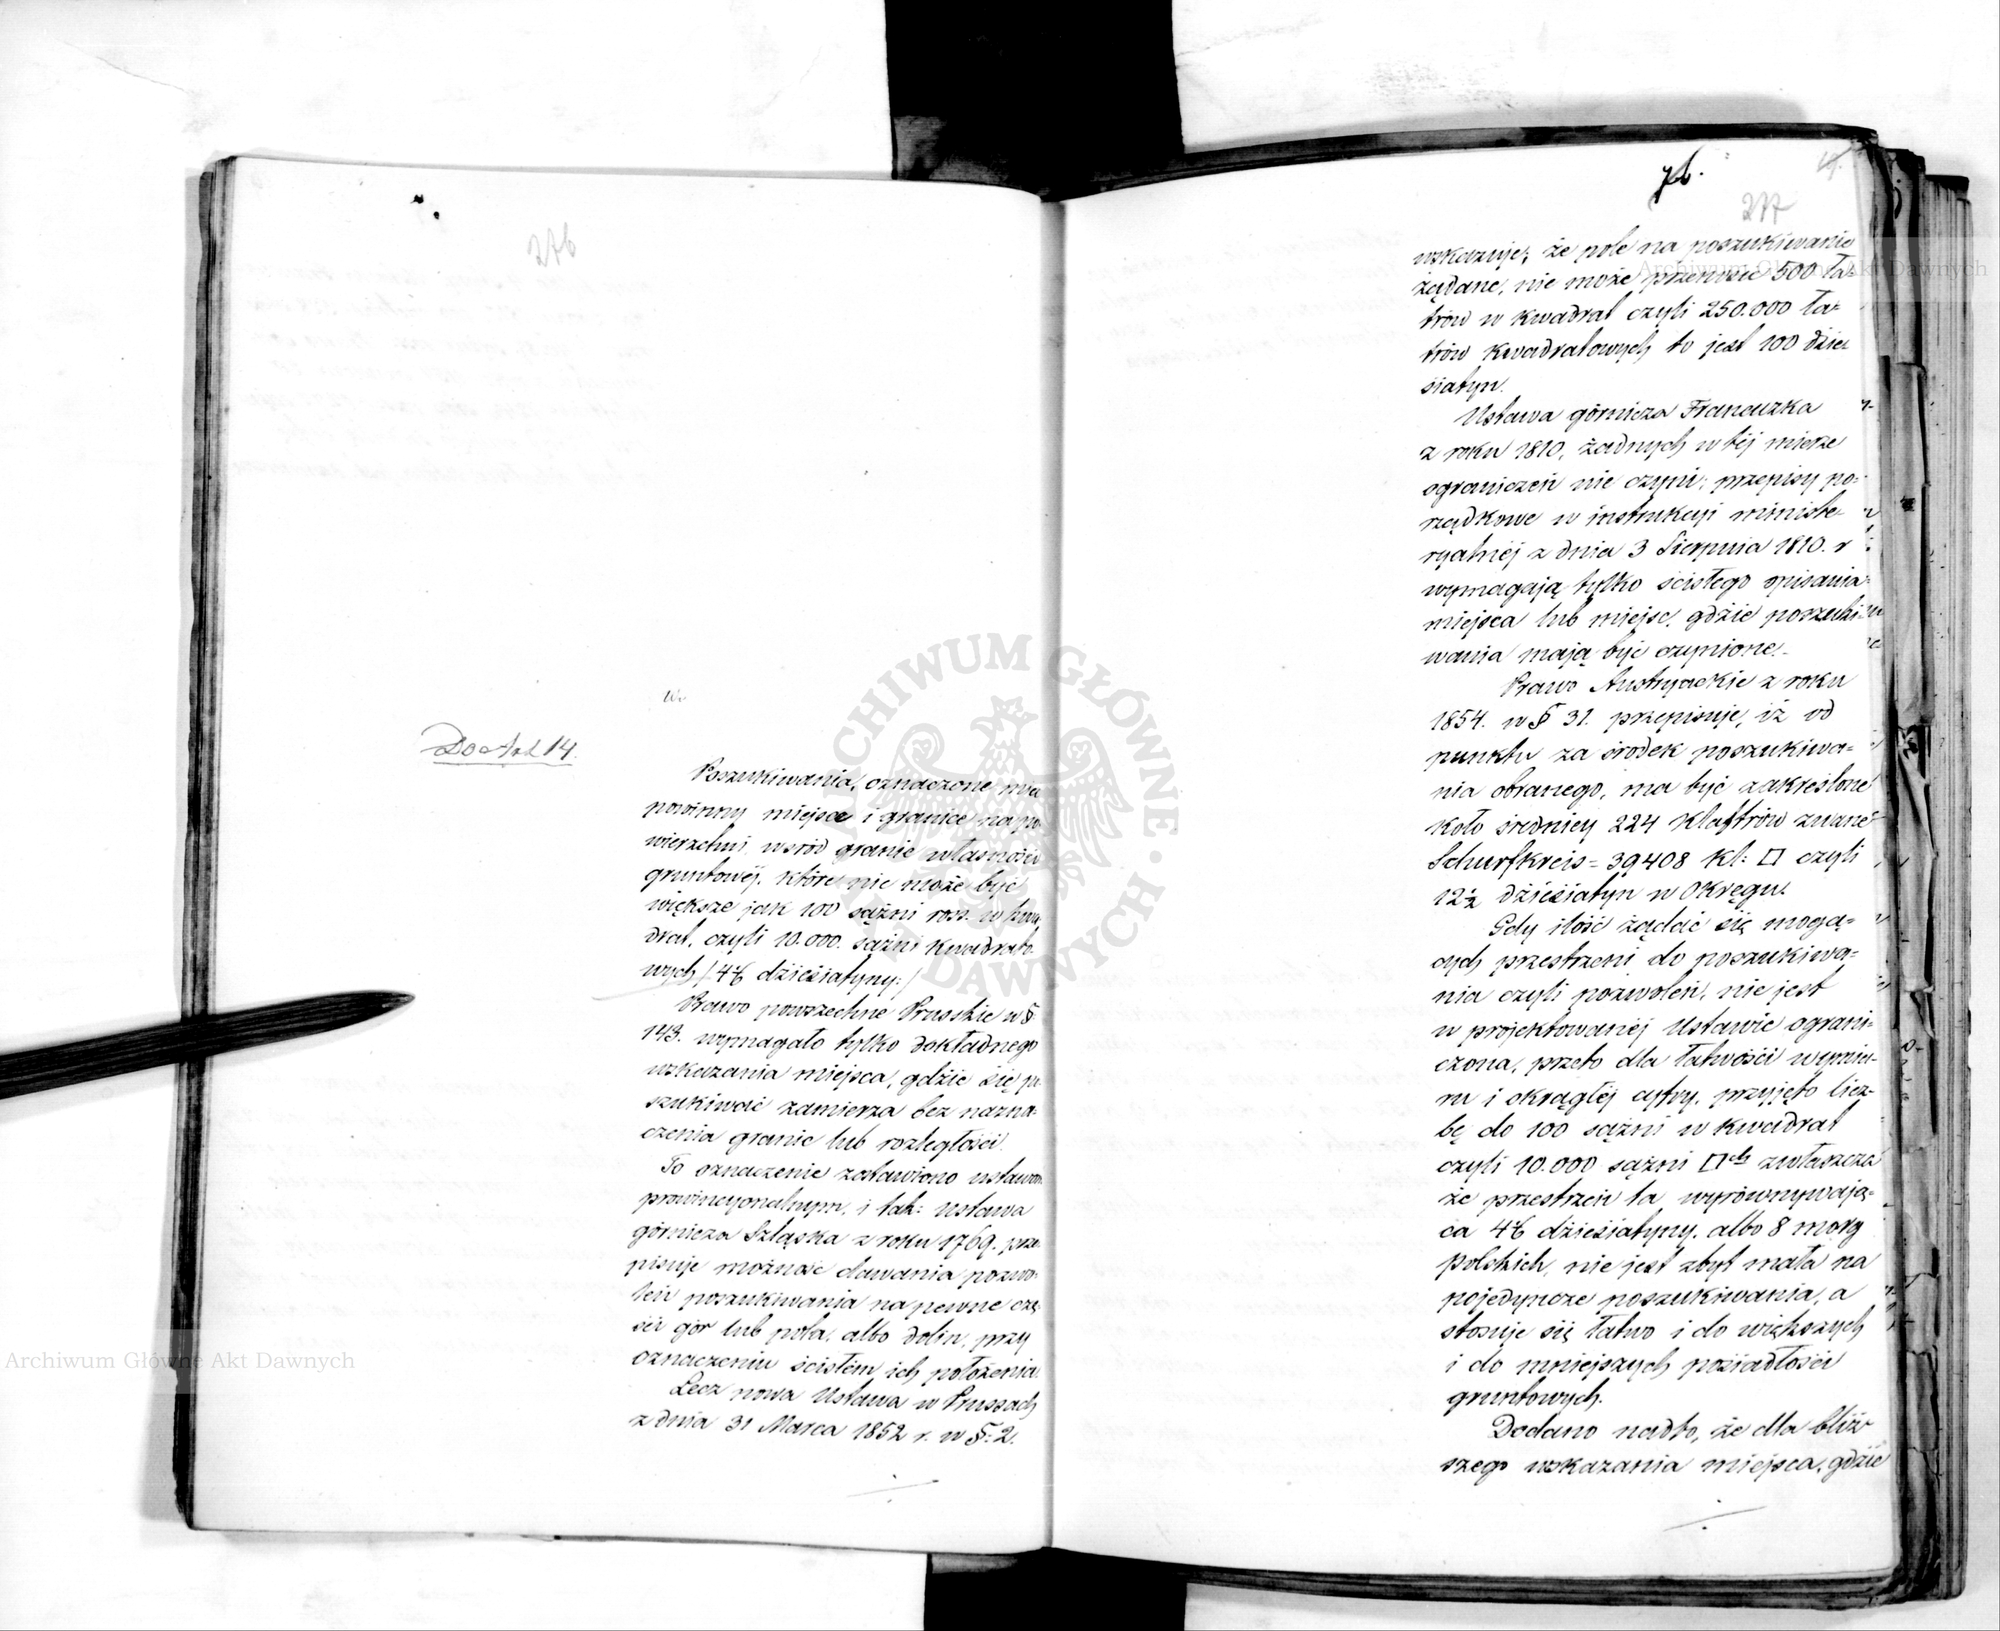 276
Do Art 14.
Poszukiwania, oznaczone mieć
powinny miejsce i granice na po-
wierzchni wsród granic własności
gruntowéj, które nie może być
większe jak 100 sążni ross. w kwa
drat, czyli 10.000. sążni kwadrato-
wych /4 1/6 dziesiatyny:/
Prawo powszechne Pruskie w §
143. wymagało tylko dokładnego
wskazania miejsca, gdzie się po
szukiwać zamierza bez nazna-
czenia granic lub rozległości.
To oznaczenie zostawiono ustawom
prowincyonalnym, i tak: Ustawa
górnicza Szląska z roku 1769. prze-
pisuje możność dawania pozwo-
leń poszukiwania na pewne czę-
ści gór lub pola, albo dolin, przy
oznaczeniu ścisłém ich położenia.
Lecz nowa Ustawa w Prussach
z dnia 31 Marca 1852 r. w §: 2.
76.
277
wskazuje, że pole na poszukiwanie
żądane, nie może przenosić 500 ła-
trów w kwadrat czyli 250.000 ła-
trów kwadratowych to jest 100 dzie
siatyn.
Ustawa górnicza Francuzka
z roku 1810, żadnych w téj mierze
ograniczeń nie czyni; przepisy po-
rządkowe w instrukcyi ministe-
ryalnéj z dnia 3 Sierpnia 1810. r
wymagają tylko ścisłego opisania
miejsca lub miejsc, gdzie poszuki-
wania mają być czynione.
Prawo Austryackie z roku
1854. w § 31. przepisuje, iż od
punktu za środek poszukiwa-
nia obranego, ma być zakreślone
koło średnicy 224 klaftrów zwane
Schurfkreis = 39408 kl: □ czyli
12 1/2 dziesiatyn w okręgu.
Gdy ilość żądać się mogą-
cych przestrzeni do poszukiwa-
nia czyli pozwoleń, nie jest
w projektowanéj Ustawie ograni-
czona, przeto dla łatwości wymia-
ru i okrągłéj cyfry, przyjęto licz-
bę do 100 sążni w kwadrat
czyli 10.000 sążni □ch zwłaszcza
że przestrzeń ta wyrównywają-
ca 4 1/6 dziesiatyny, albo 8 morg
polskich, nie jest zbyt mała na
pojedyncze poszukiwania, a
stosuje się łatwo i do większych
i do mniejszych posiadłości
gruntowych.
Dodano nadto, że dla bliż-
szego wskazania miejsca, gdzie
ARCHIWUM GŁÓWNE AKT DAWNYCH
Archiwum Główne Akt Dawnych
Archiwum Główne Akt Dawnych